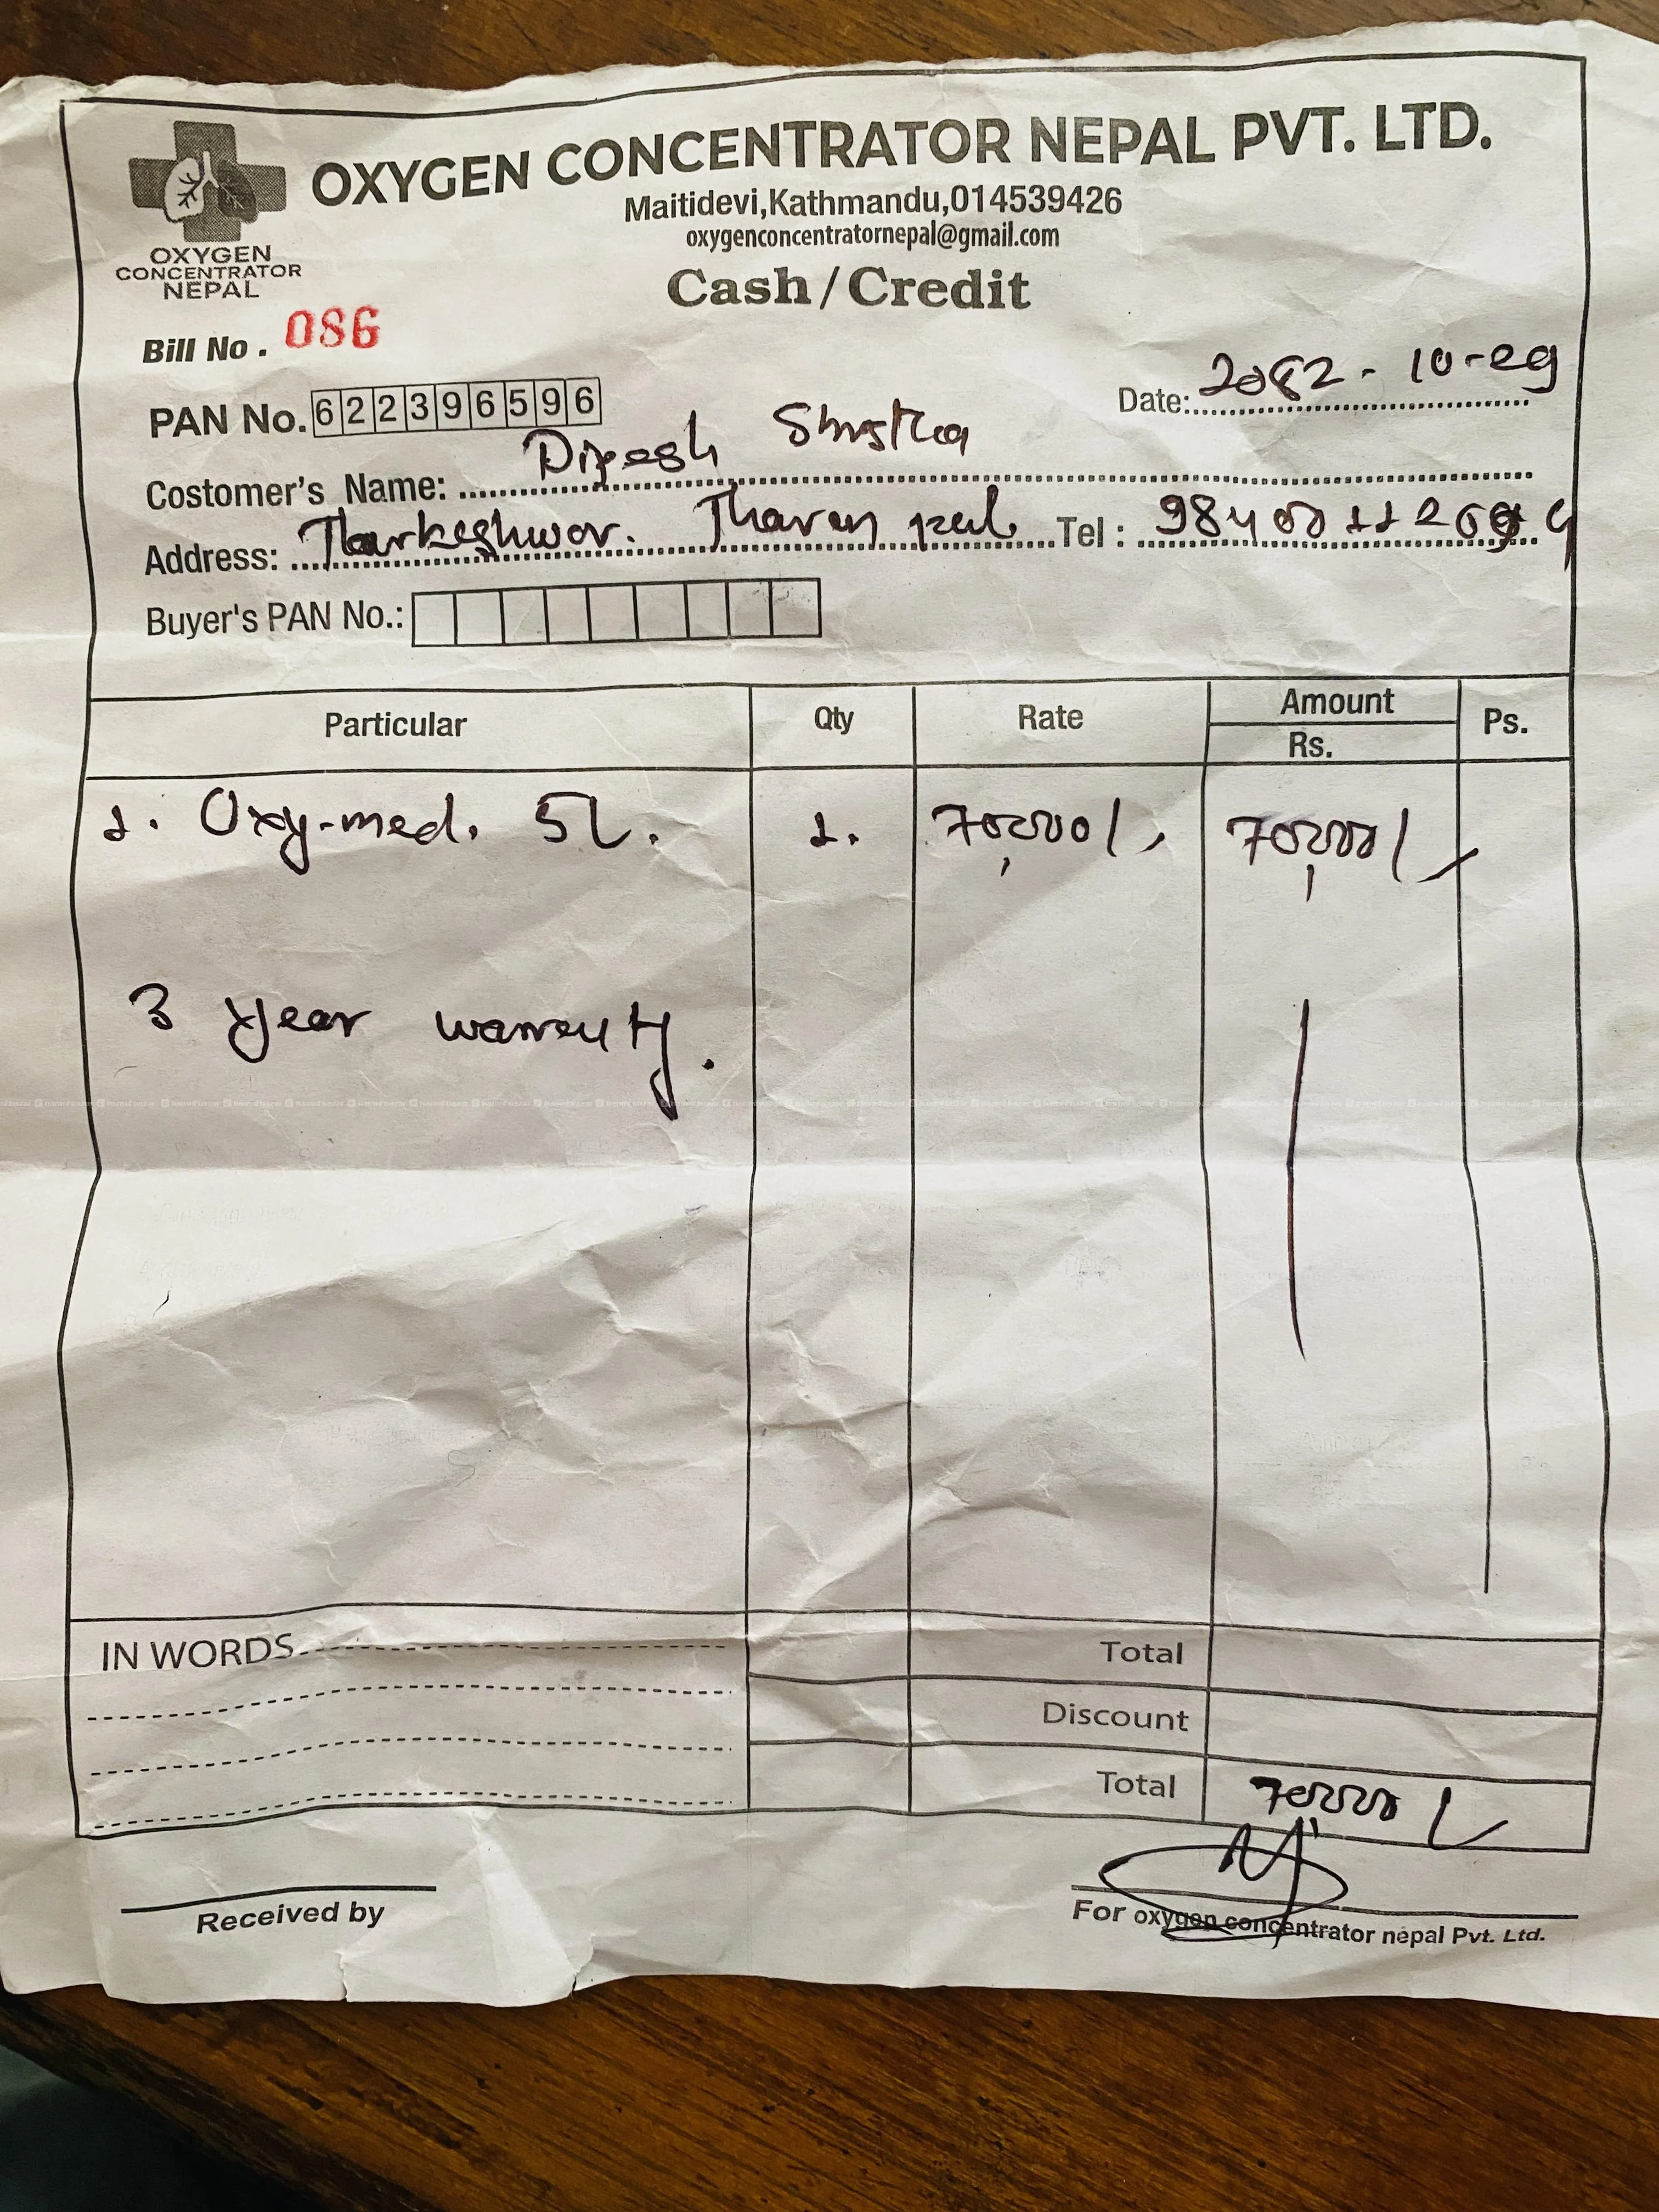 OXYGEN CONCENTRATOR NEPAL PVT. LTD.
Maitidevi,Kathmandu,014539426
oxygenconcentratornepal@gmail.com
OXYGEN
CONCENTRATOR
NEPAL
Cash/Credit
Bill No. 086
PAN No. 622396596
Date: 2082-10-29
Costomer's Name: Dipesh Shrstha
Address: Tharkeshwor. Tel :
Buyer's PAN No.:
Particular Qty Rate Amount Rs. Ps.
1. Oxy-med. 5L. 1. 70,000/- 70,000/-
3 year warrenty.
IN WORDS
Total
Discount
Total 70,000/-
Received by
For oxygen concentrator nepal Pvt. Ltd.